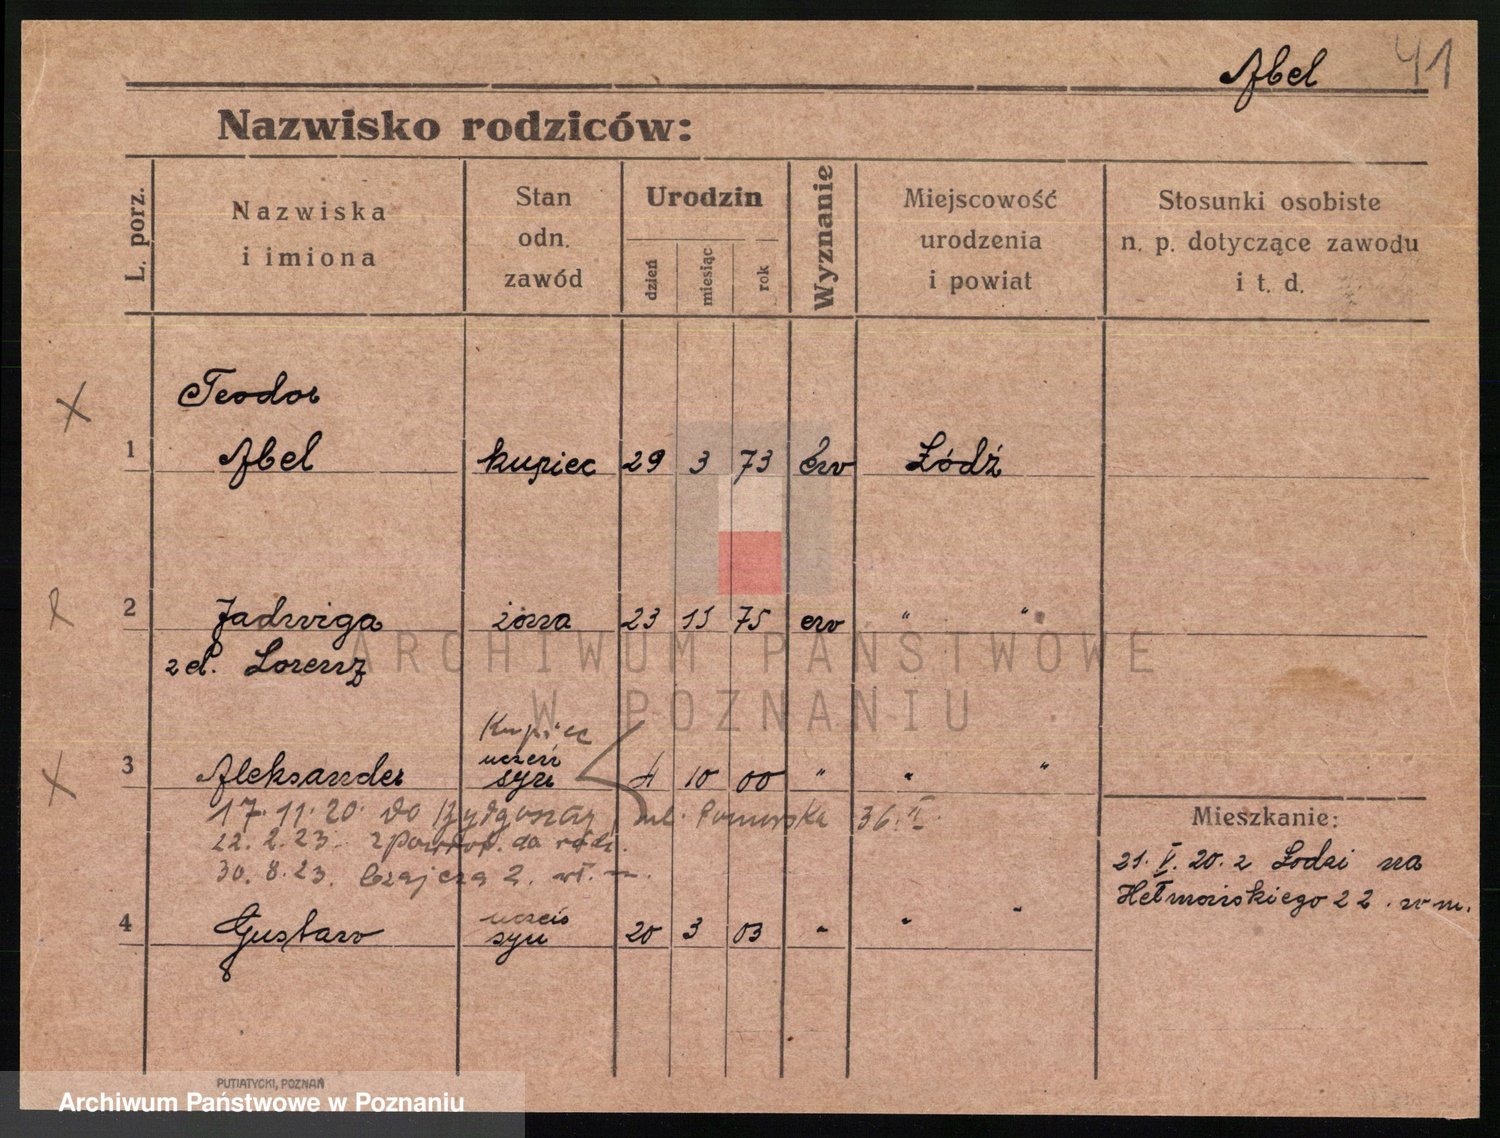 Abel 41
Nazwisko rodziców:
L. porz.
Nazwiska
i imiona
Stan
odn.
zawód
Urodzin
dzień
miesiąc
rok
Wyznanie
Miejscowość
urodzenia
i powiat
Stosunki osobiste
n. p. dotyczące zawodu
i t. d.
Teodor
1 Abel kupiec 29 3 73 Łódź
2 Jadwiga żona 23 75 " "
zd. Lorenz
Kupiec
uczeń
3 Aleksander syn 10 00 " " "
17. 11. 20. do Bydgoszczy ul. Pomorska 36. II.
22. 2. 23. z powrot. do rodz.
30. 8. 23. 2.
uczeń
4 Gustaw syn 20 3 03 " " "
Mieszkanie:
21. V. 20. z Łodzi na
Hetmańskiego 22. w m.
PUTIATYCKI, POZNAŃ
ARCHIWUM PAŃSTWOWE
W POZNANIU
Archiwum Państwowe w Poznaniu